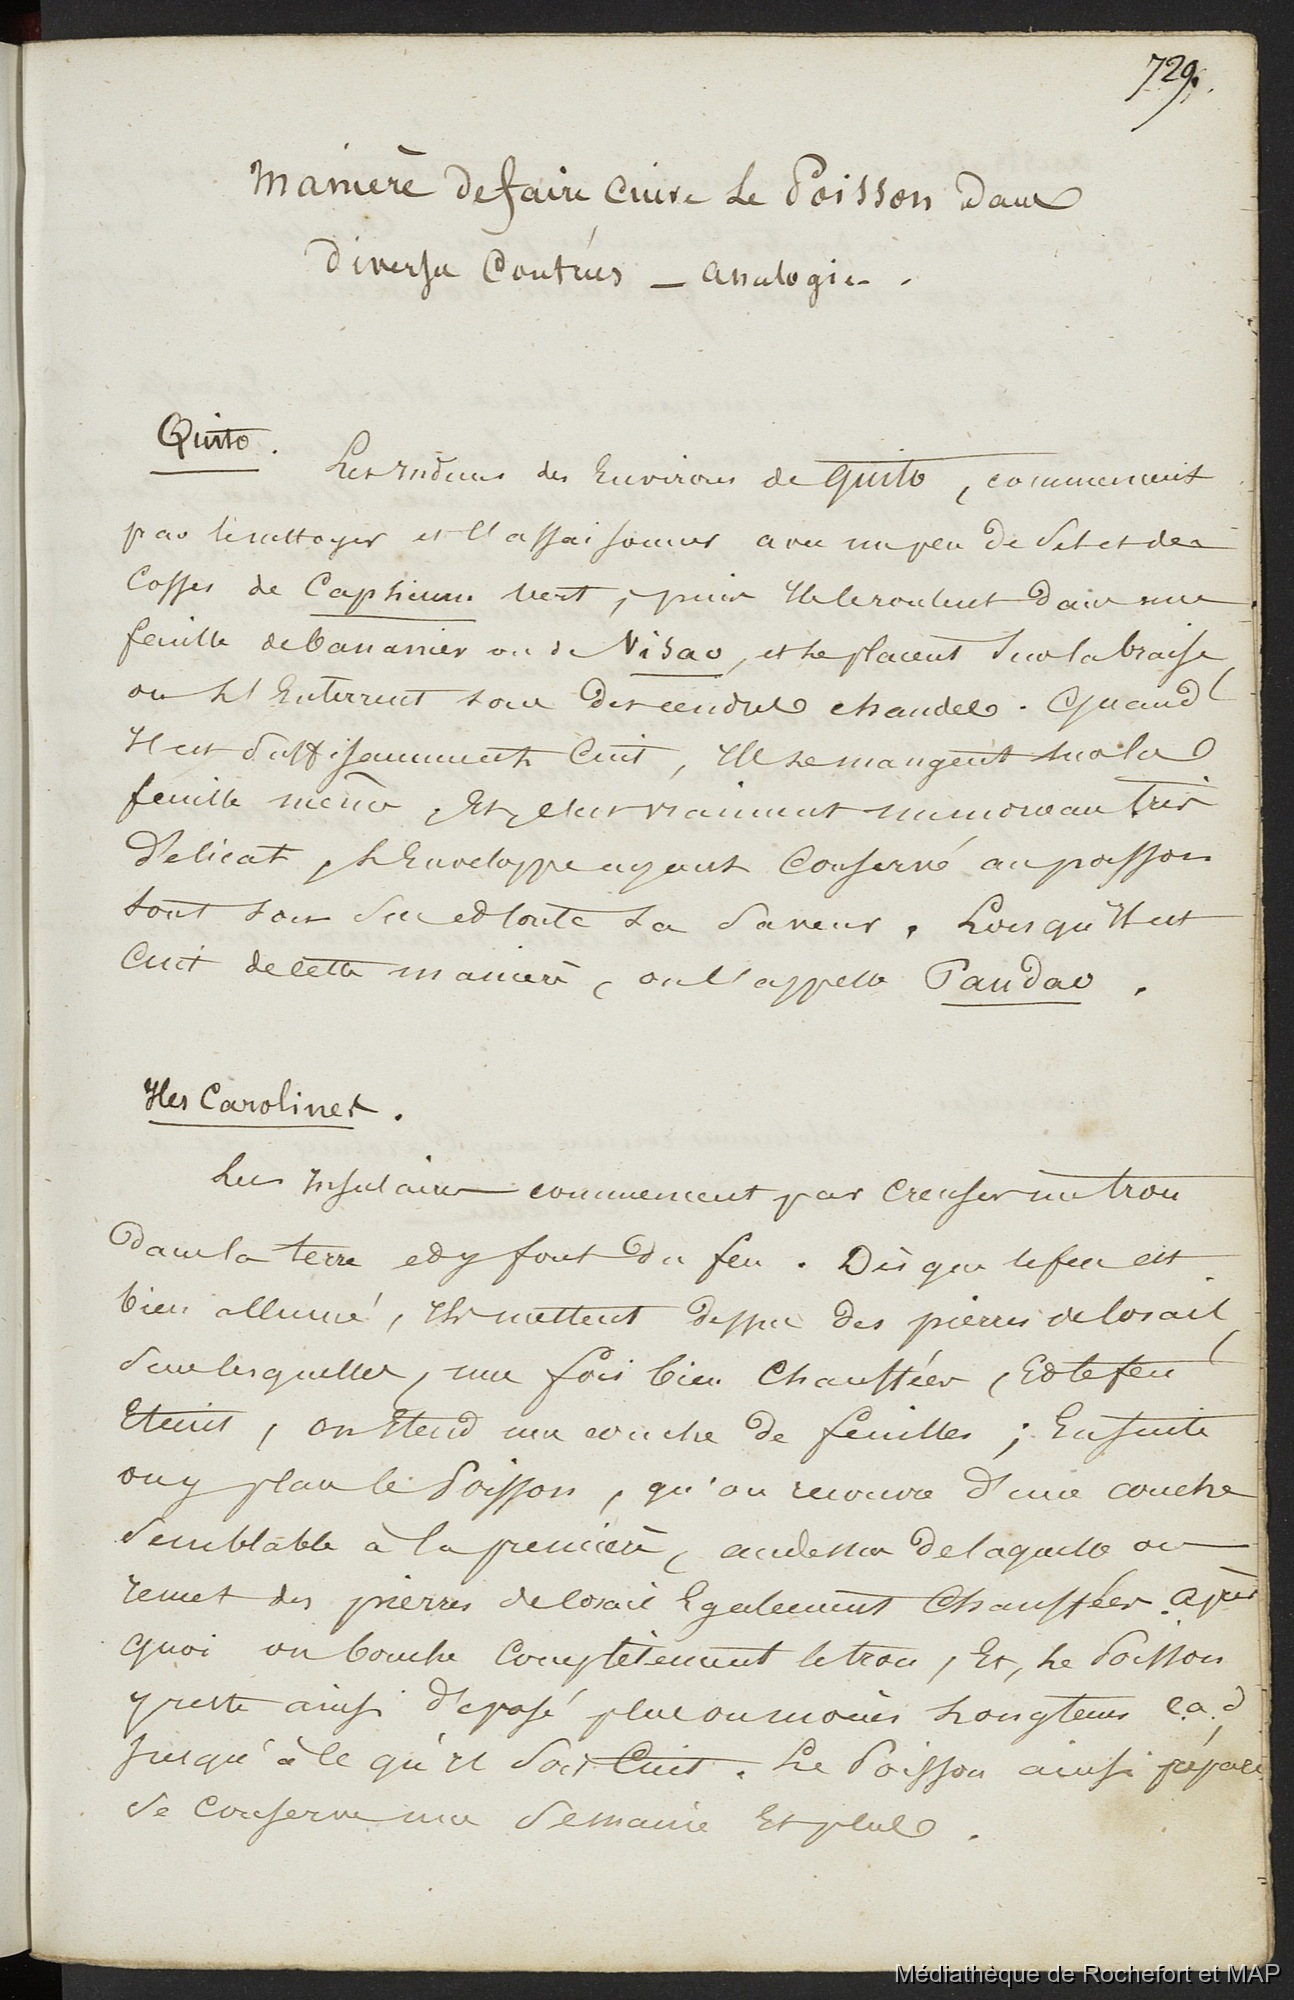 729.
Manière de faire cuire le Poisson dans
diverses Contrées — analogie.
Quito.
Les Indiens des Environs de Quito, commencent
par le nettoyer et l'assaisonner avec un peu de sel et des
Cosses de Capsicum vert, puis Ils le roulent dans une
feuille de bananier ou de Visao, et le placent sur la braise,
ou l'Enterrent sous des cendres chaudes. Quand
Il est suffisamment Cuit, Ils le mangent sur la
feuille même, Et, c'est vraiment un morceau très
délicat, l'Enveloppe ayant Conservé au poisson
tout son suc et toute sa saveur. Lorsqu'Il est
Cuit de cette manière, on l'appelle Pandao.
Iles Carolines.
Les Insulaires commencent par creuser un trou
dans la terre et y font du feu. Dès que le feu est
bien allumé, Ils mettent dessus des pierres de corail,
sur lesquelles, une fois bien Chauffées, Et le feu
Eteint, on Etend une couche de feuilles; Ensuite
on y place le Poisson, qu'on recouvre d'une couche
semblable à la première, au dessus de laquelle on
remet des pierres de corail Egalement Chauffées. après
quoi on bouche complètement le trou, Et, le Poisson
y reste ainsi déposé plus ou moins longtems c.a.d
jusqu'à ce qu'Il soit Cuit. Le Poisson ainsi préparé
se conserve une semaine Et plus.
Médiathèque de Rochefort et MAP